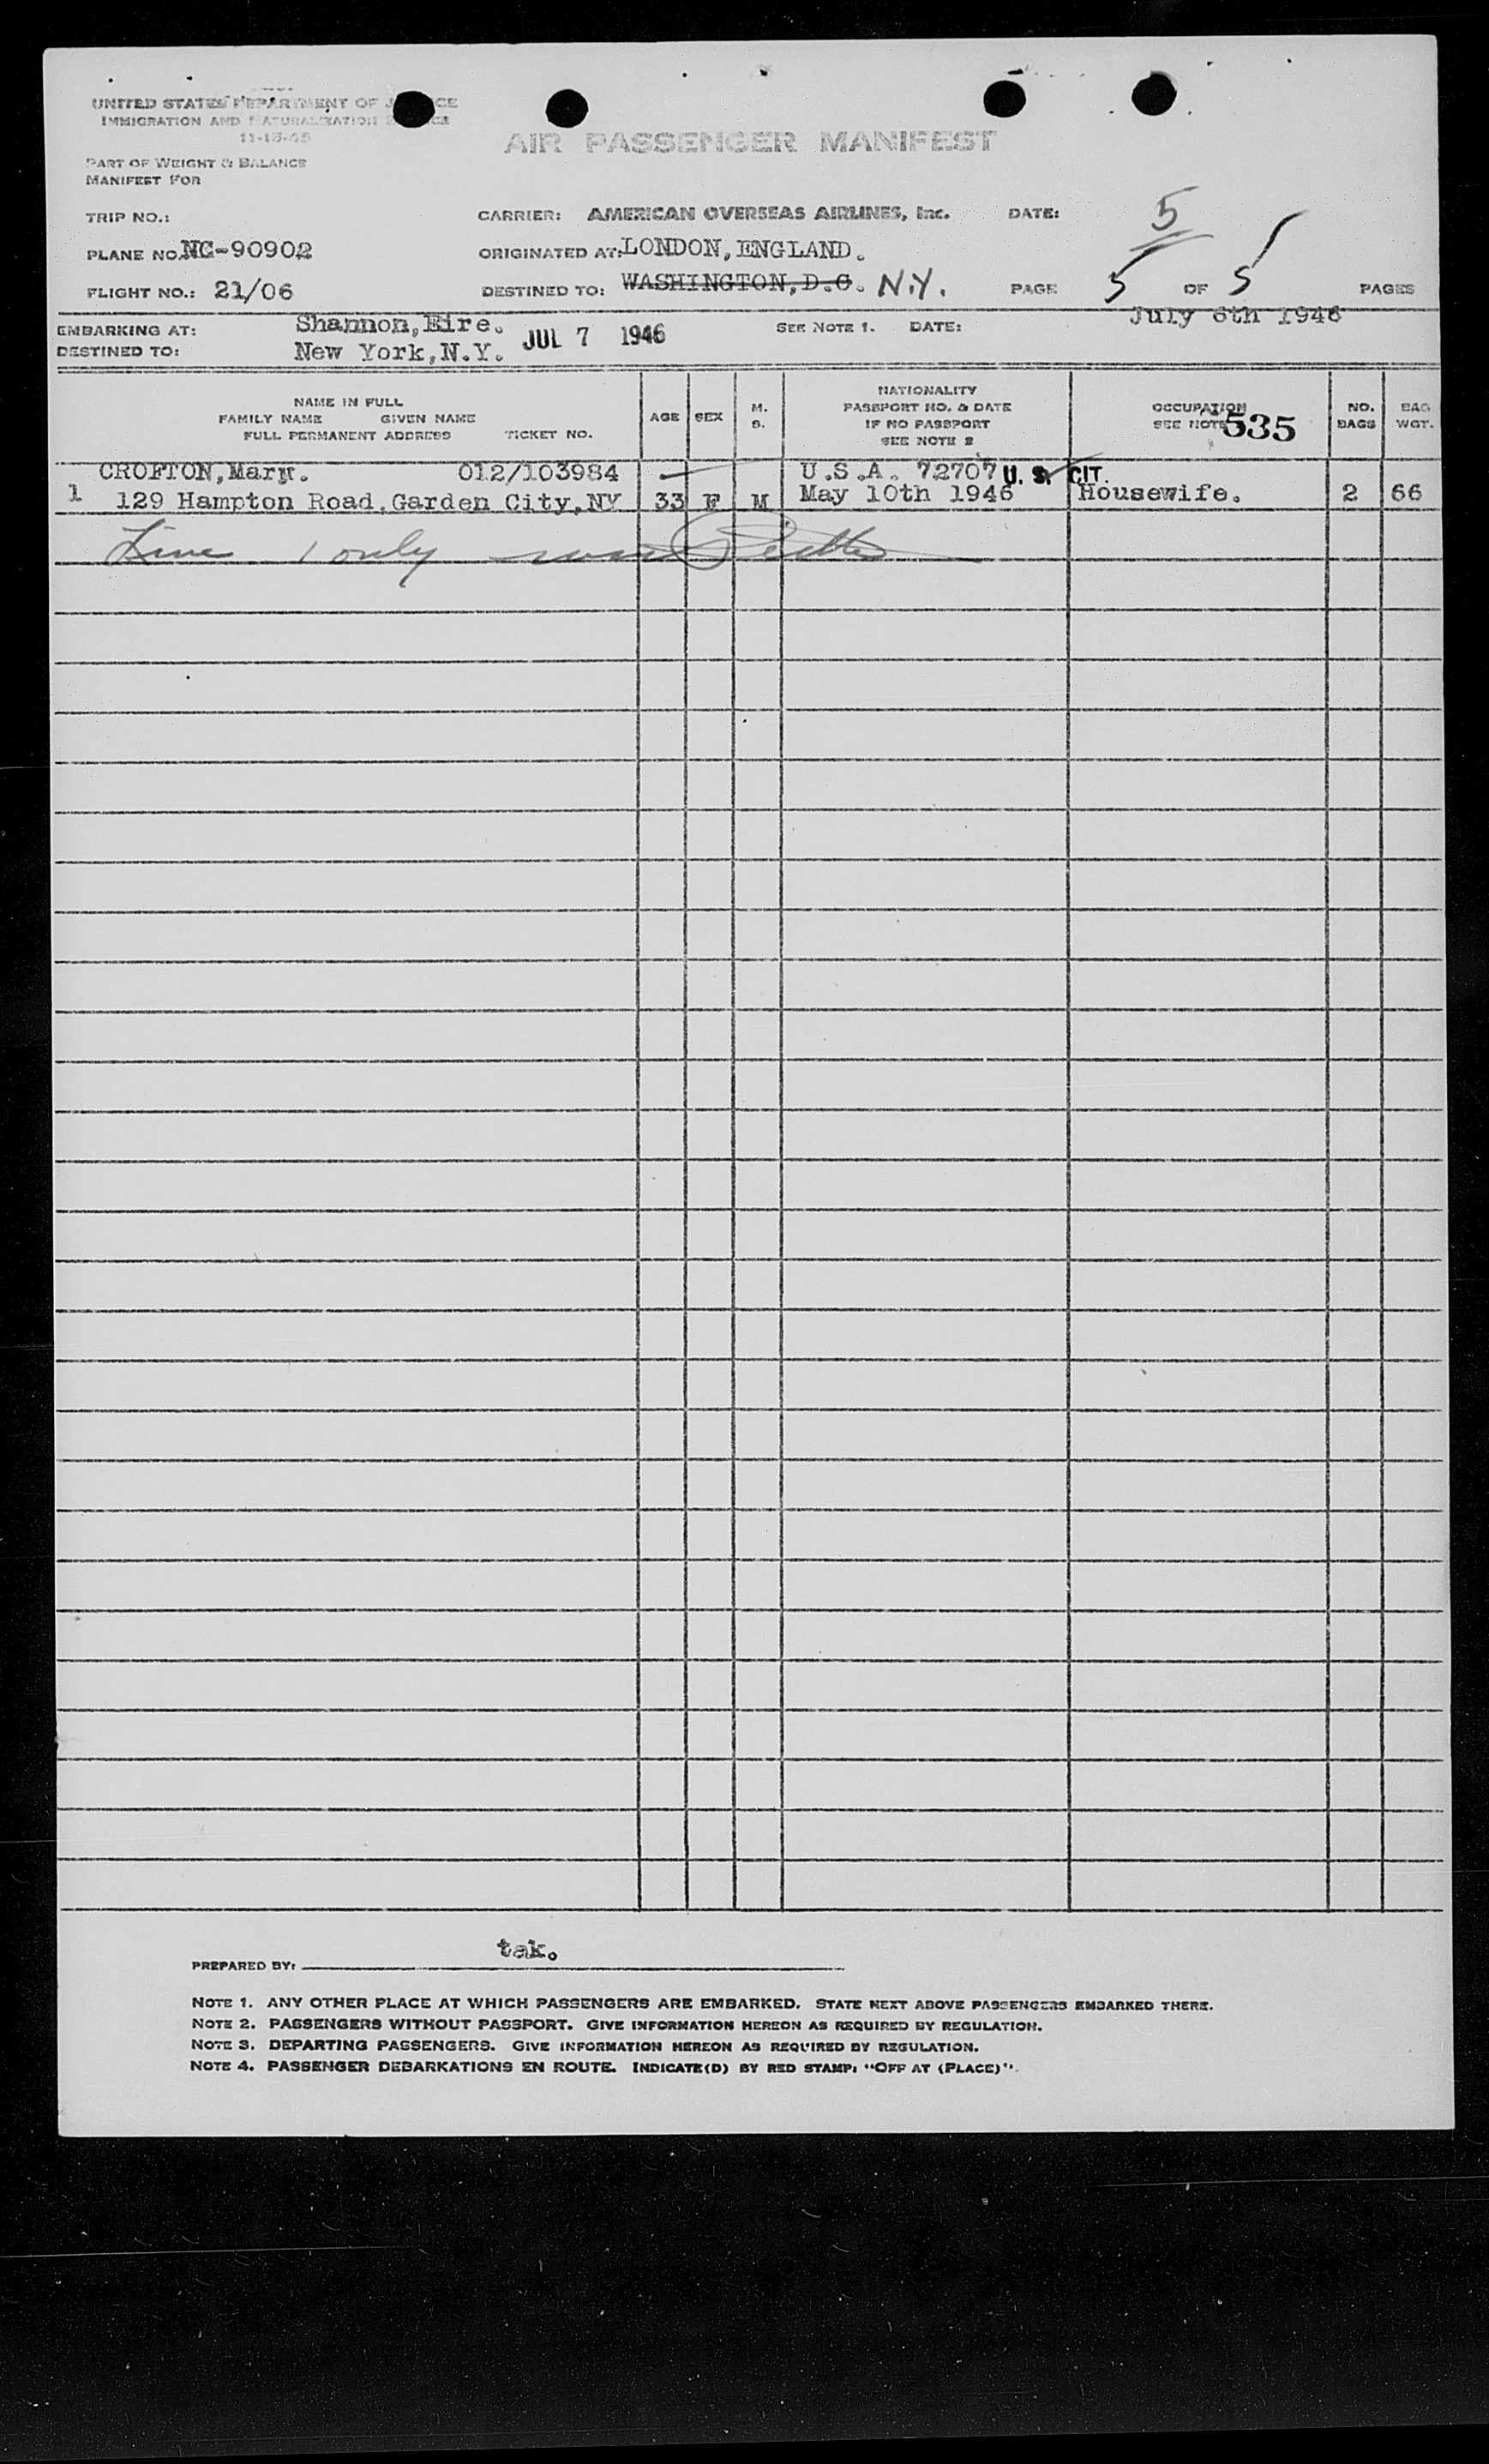 UNITED STATES DEPARTMENT OF
IMMIGRATION AND NATURALIZATION
11-15-45
AIR PASSENGER MANIFEST
PART OF WEIGHT & BALANCE
MANIFEST FOR
TRIP NO.: CARRIER: AMERICAN OVERSEAS AIRLINES, Inc. DATE: 5
PLANE NO. NC-90902 ORIGINATED AT: LONDON, ENGLAND.
FLIGHT NO.: 21/06 DESTINED TO: WASHINGTON, D.C. N.Y. PAGE 5 OF 5 PAGES
EMBARKING AT: Shannon, Eire. JUL 7 1946 SEE NOTE 1. DATE: July 6th 1946
DESTINED TO: New York, N.Y.
NAME IN FULL
FAMILY NAME GIVEN NAME
FULL PERMANENT ADDRESS TICKET NO.
AGE SEX M. S.
NATIONALITY
PASSPORT NO. & DATE
IF NO PASSPORT
SEE NOTE 2
OCCUPATION
SEE NOTE 535
NO. BAGS
BAG WGT.
CROFTON, Mary. 012/103984 U.S.A. 72707 U. S. CIT.
1 129 Hampton Road, Garden City, NY 33 F M May 10th 1946 Housewife. 2 66
Line 1 only
PREPARED BY: tek.
NOTE 1. ANY OTHER PLACE AT WHICH PASSENGERS ARE EMBARKED. STATE NEXT ABOVE PASSENGERS EMBARKED THERE.
NOTE 2. PASSENGERS WITHOUT PASSPORT. GIVE INFORMATION HEREON AS REQUIRED BY REGULATION.
NOTE 3. DEPARTING PASSENGERS. GIVE INFORMATION HEREON AS REQUIRED BY REGULATION.
NOTE 4. PASSENGER DEBARKATIONS EN ROUTE. INDICATE(D) BY RED STAMP: "OFF AT (PLACE)".